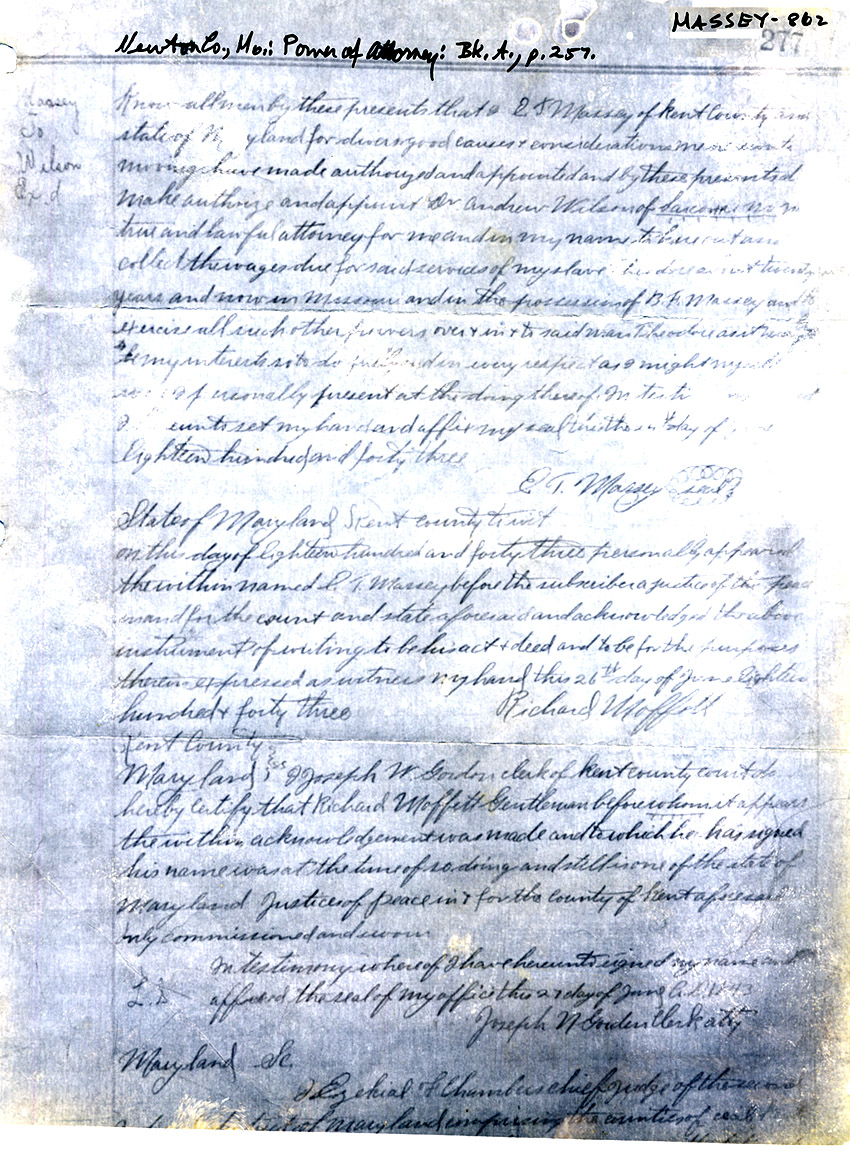 MASSEY-862
277
Newton Co., Mo.: Power of Attorney: Bk. A., p. 257.
Massey
To
Wilson
Ex.d
Know all men by these presents that I E T Massey of Kent County and
state of M yland for divers good causes & considerations me
moving have made authorized and appointed and by these presents d
make authorize and appoint Dr Andrew Wilson of
true and lawful attorney for me and in my name to
collect the wages due for said services of my slave Theodore twenty
years and now in Missouri and in the possession of B. F. Massey and to
exercise all such other powers over & in & to said man Theodore as it
be my interests so to do in every respect as I might
personally present at the doing thereof. In testi
eunto set my hand and affix my seal this day of
Eighteen hundred and forty three
E T. Massey Seal
State of Maryland Kent county to wit
on this day of Eighteen hundred and forty three personally appeared
the within named E. T. Massey before the subscriber a justice of the peace
in and for the count and state aforesaid and acknowledged the above
instrument of writing to be his act & deed and to be for the purposes
therein expressed as witness my hand this 26th day of June Eighteen
hundred & forty three Richard Moffett
Kent County
Maryland Ss I Joseph W. Gordon clerk of Kent county court do
hereby certify that Richard Moffett Gentleman before whom it appears
the within acknowledgement was made and to which he has signed
his name was at the time of so doing and still is one of the state of
Maryland Justices of peace in & for the county of Kent aforesaid
duly commissioned and sworn
In testimony whereof I have hereunto signed my name and
L.S affixed the seal of my office this 27 day of June A.D. 1843
Joseph W Gordon Clerk
Maryland Sc.
I Ezekial F Chambers chief judge of the second
of Maryland comprising the counties of